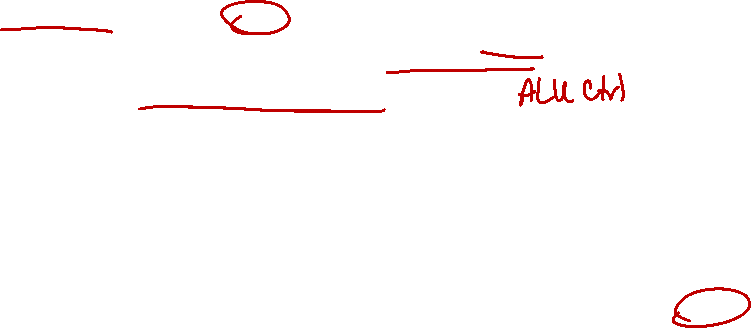 ALU Ctrl